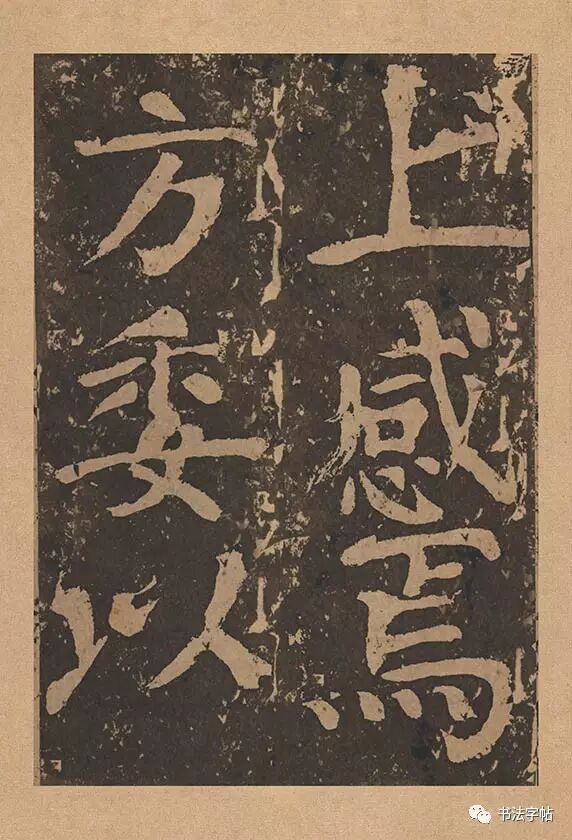 上感焉
方委以
书法字帖